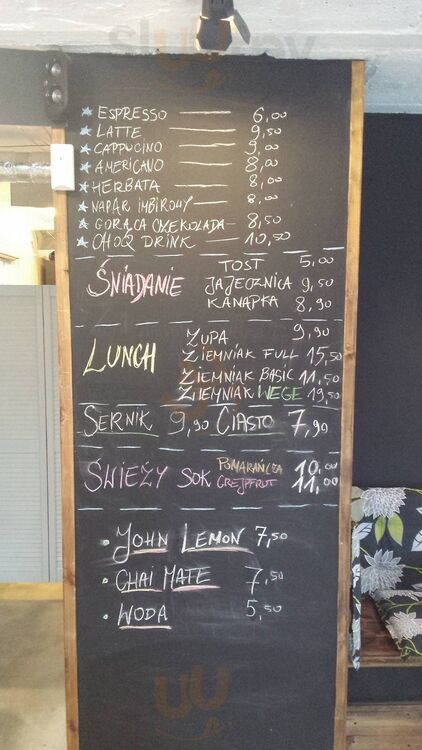 ESPRESSO 6,00
LATTE 9,50
CAPPUCINO 9,00
AMERICANO 8,00
HERBATA 8,00
NAPAR IMBIROWY 8,00
GORĄCA CZEKOLADA 8,50
CHOQ DRINK 10,50
ŚNIADANIE
TOST 5,00
JAJECZNICA 9,50
KANAPKA 8,90
LUNCH
ZUPA 9,90
ZIEMNIAK FULL 15,50
ZIEMNIAK BASIC 11,50
ZIEMNIAK WEGE 19,50
SERNIK 9,90 CIASTO 7,90
ŚWIEŻY SOK
POMARAŃCZA 10,00
GREJPFRUT 11,00
JOHN LEMON 7,50
CHAI MATE 7,50
WODA 5,50